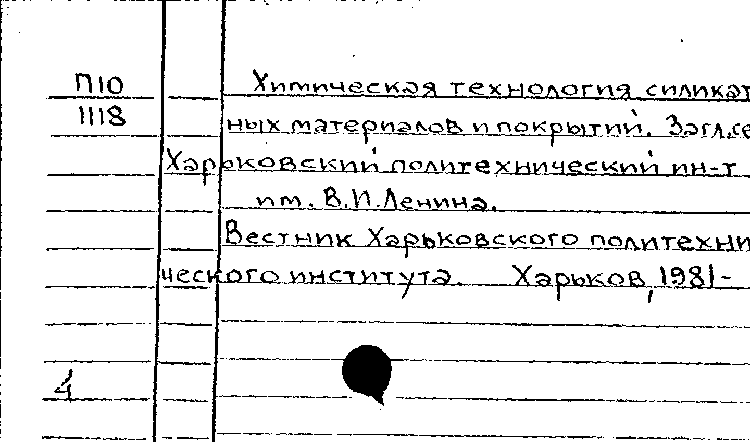 П10 Химическая технология силикат
1118 ных материалов и покрытий. Загл.се
Харьковский политехнический ин-т
им. В.И.Ленина.
Вестник Харьковского политехни
ческого института. Харьков, 1981-
4